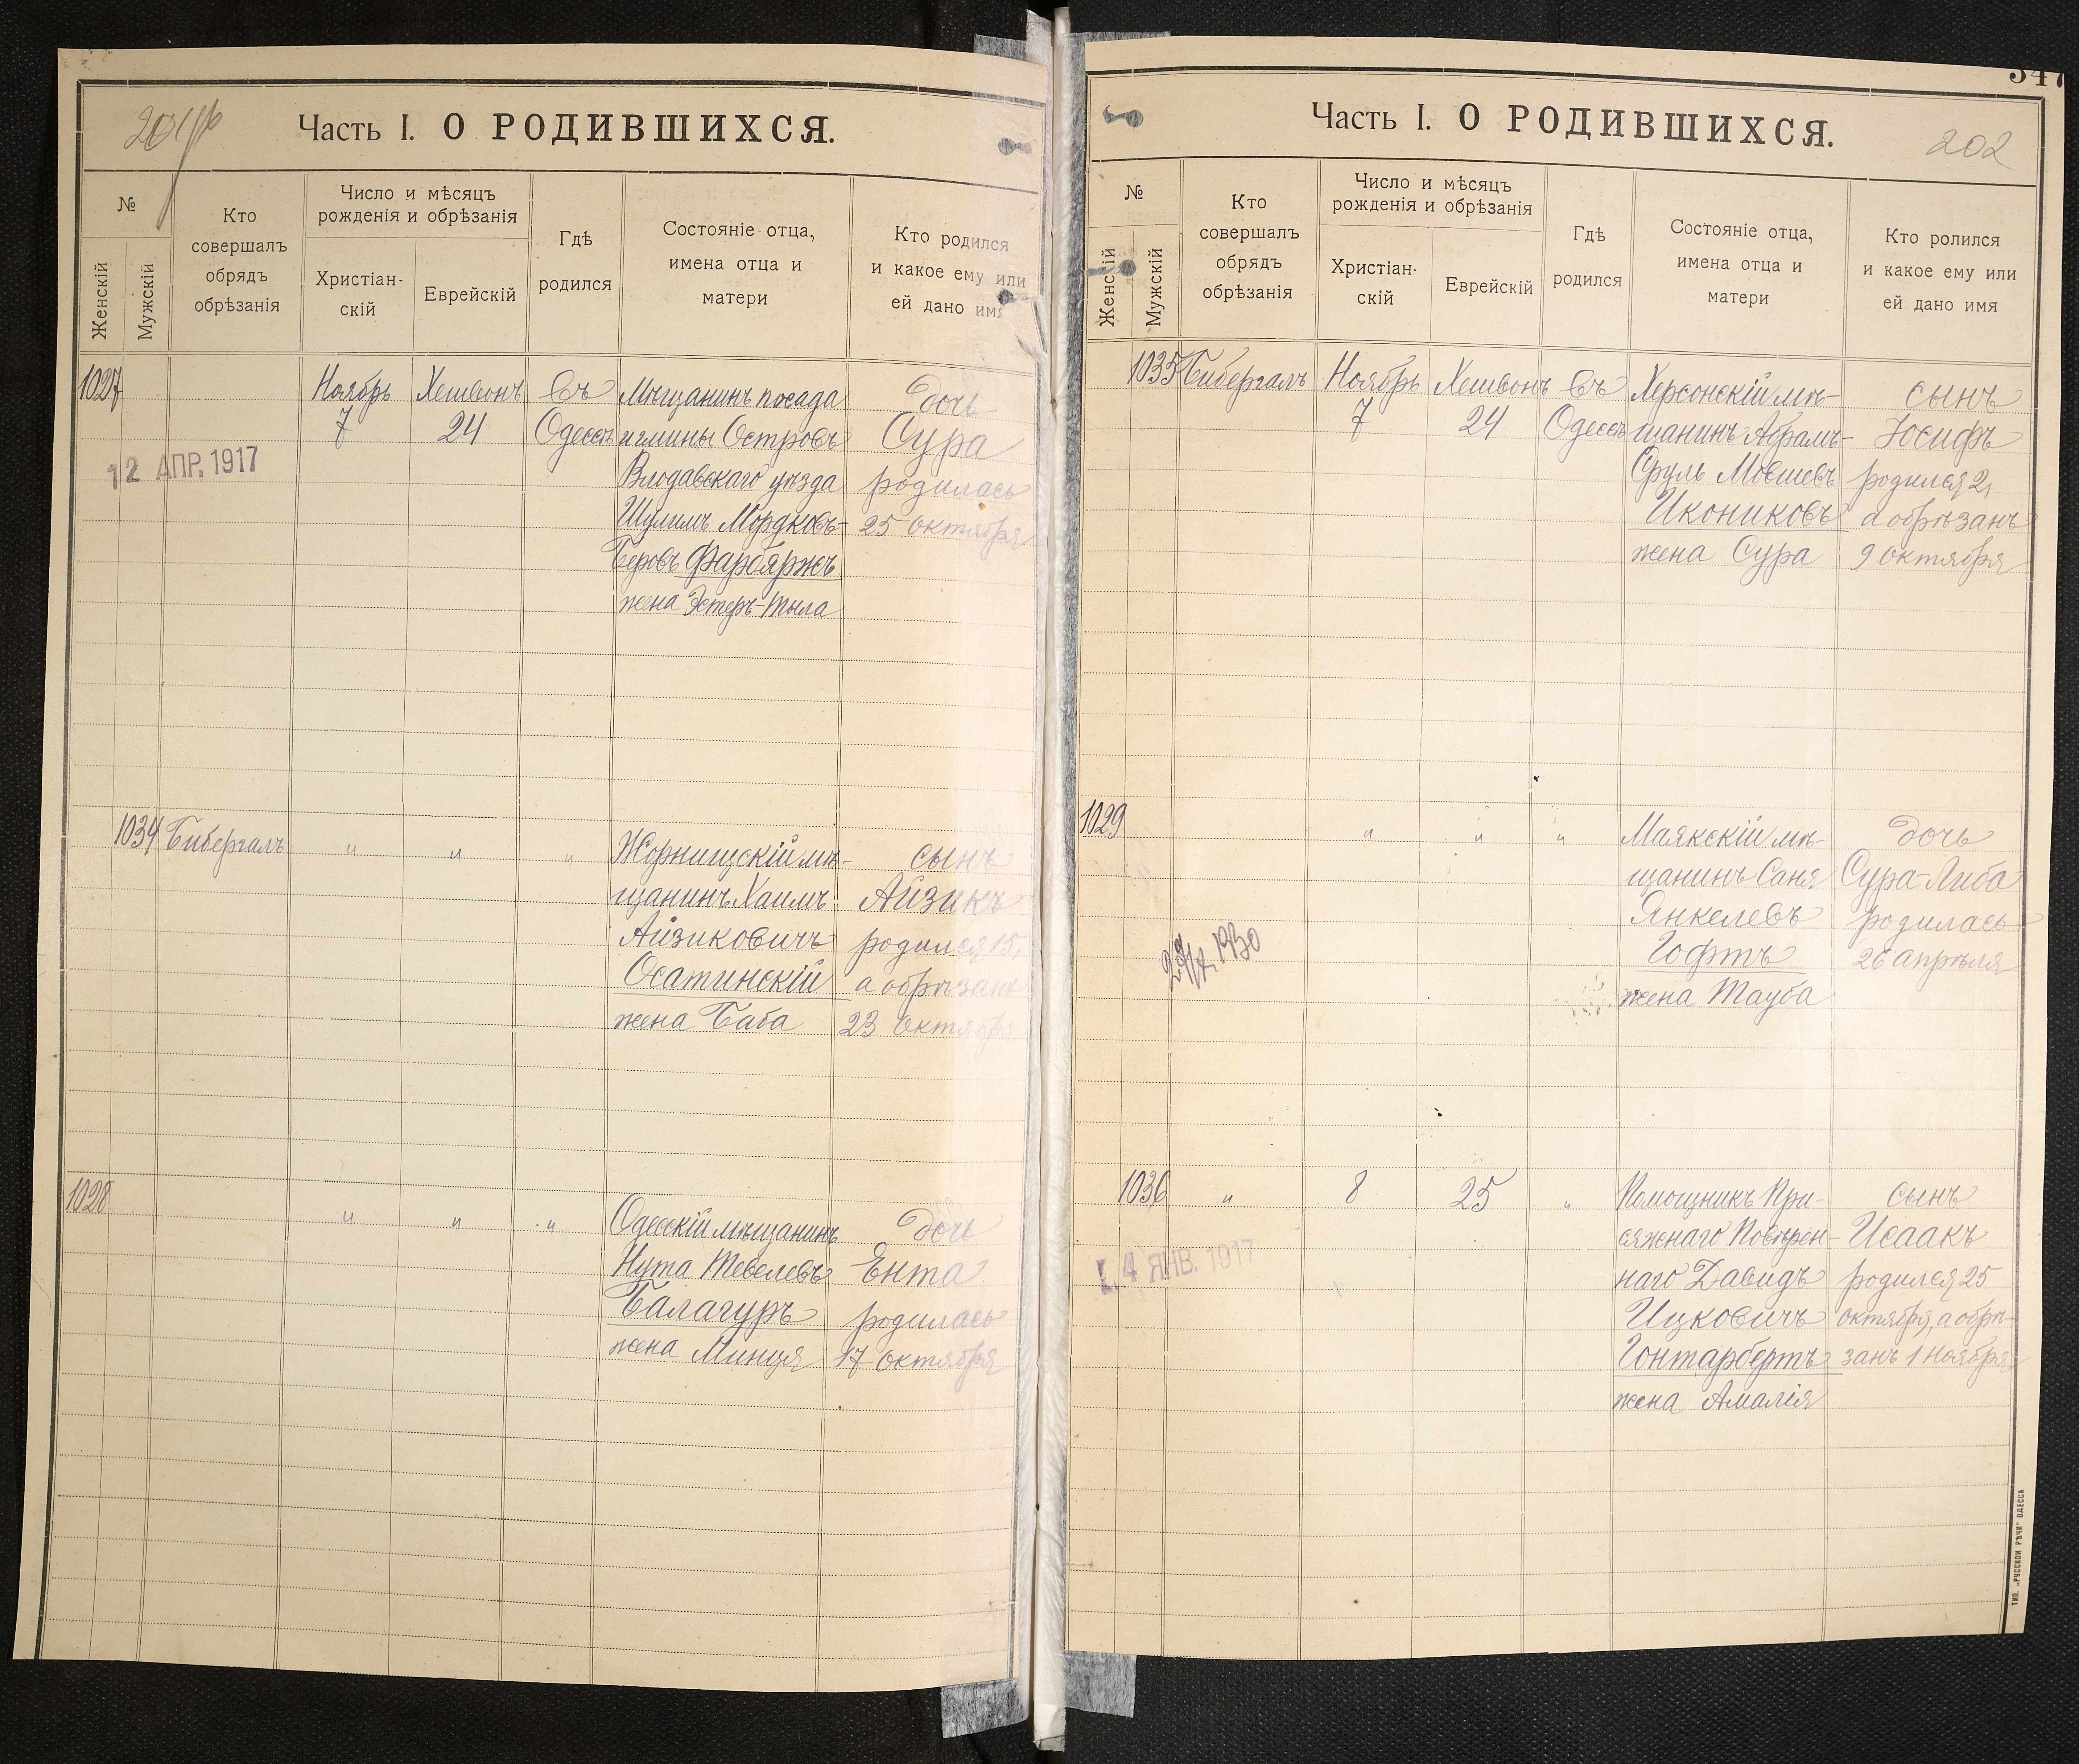 Часть I. О РОДИВШИХСЯ.
№
Женскій
Мужскій
Кто
совершалъ
обрядъ
обрѣзанія
Число и мѣсяцъ
рожденія и обрѣзанія
Христіан-
скій
Еврейскій
Гдѣ
родился
Состояніе отца,
имена отца и
матери
Кто родился
и какое ему или
ей дано имя
1027
Ноябрь
7
Хешвонъ
24
Въ
Одессѣ
Мѣщанинъ посада
и гмины Островъ
Влодавскаго уѣзда
Шулимъ Мордковъ-
Беровъ Фарбяржъ
жена Эстеръ-Тыла
дочь
Сура
родилась
25 октября
12 АПР. 1917
1034
Бибергалъ
"
"
"
Жорнищскій мѣ-
щанинъ Хаимъ
Айзиковичъ
Осатинскій
жена Баба
сынъ
Айзикъ
родился 15,
а обрѣзанъ
23 октября
1028
"
"
"
Одесскій мѣщанинъ
Нута Тевелевъ
Балагуръ
жена Минця
дочь
Ента
родилась
17 октября
347
Часть I. О РОДИВШИХСЯ.
202
№
Женскій
Мужскій
Кто
совершалъ
обрядъ
обрѣзанія
Число и мѣсяцъ
рожденія и обрѣзанія
Христіан-
скій
Еврейскій
Гдѣ
родился
Состояніе отца,
имена отца и
матери
Кто ролился
и какое ему или
ей дано имя
1035
Бибергалъ
Ноябрь
7
Хешвонъ
24
Въ
Одессѣ
Херсонскій мѣ-
щанинъ Абрамъ-
Сруль Мовшевъ
Икониковъ
жена Сура
сынъ
Іосифъ
родился 2,
а обрѣзанъ
9 октября
1029
"
"
"
Маякскій мѣ-
щанинъ Саня
Янкелевъ
Гофтъ
жена Тауба
дочь
Сура-Либа
родилась
26 апрѣля
1930
1036
"
8
25
"
Помощникъ При-
сяжнаго Повѣрен-
наго Давидъ
Ицковичъ
Гонтарбертъ
жена Амалія
сынъ
Исаакъ
родился 25
октября, а обрѣ-
занъ 1 ноября
4 ЯНВ. 1917
ТИП. „РУССКОЙ РѢЧИ“ ОДЕССА